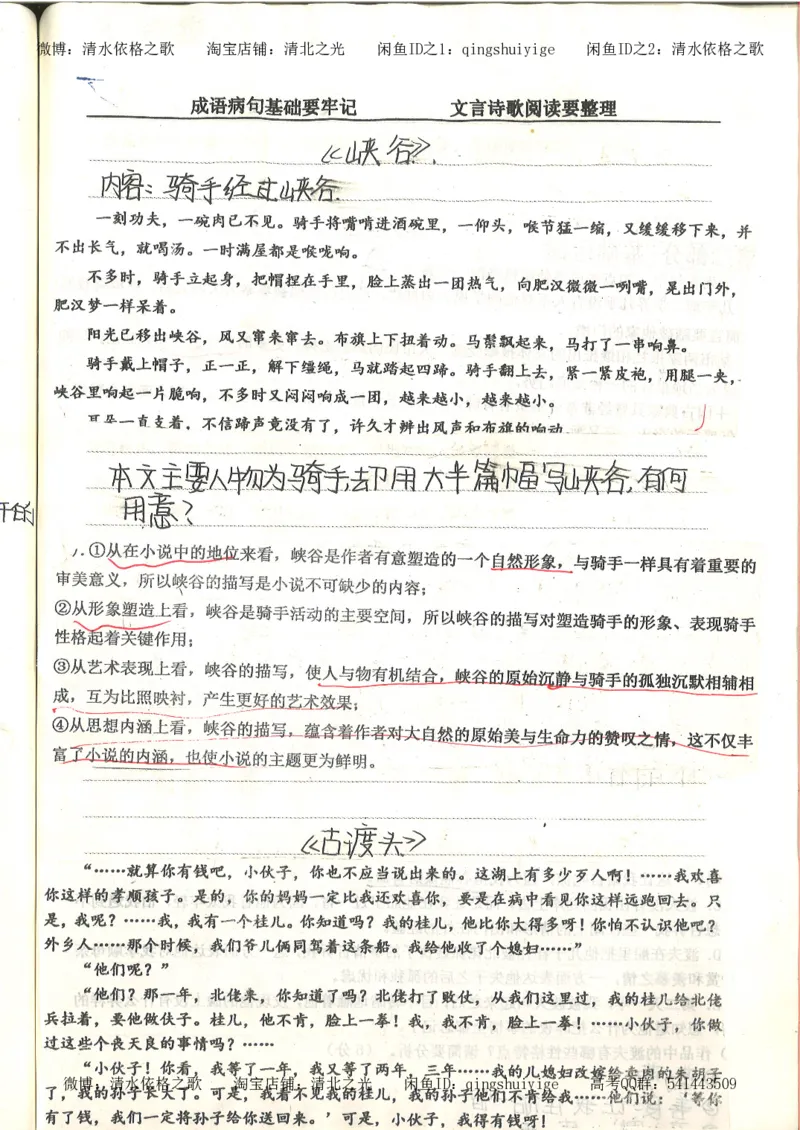 微博：清水依格之歌 淘宝店铺：清北之光 闲鱼ID之1：qingshuiyige 闲鱼ID之2：清水依格之歌
成语病句基础要牢记 文言诗歌阅读要整理
《峡谷》.
内容：骑手经过峡谷.
一刻功夫，一碗肉已不见。骑手将嘴啃进酒碗里，一仰头，喉节猛一缩，又缓缓移下来，并
不出长气，就喝汤。一时满屋都是喉咙响。
不多时，骑手立起身，把帽捏在手里，脸上蒸出一团热气，向肥汉微微一咧嘴，晃出门外，
肥汉梦一样呆着。
阳光已移出峡谷，风又窜来窜去。布旗上下扭着动。马鬃飘起来，马打了一串响鼻。
骑手戴上帽子，正一正，解下缰绳，马就踏起四蹄。骑手翻上去，紧一紧皮袍，用腿一夹，
峡谷里响起一片脆响，不多时又闷闷响成一团，越来越小，越来越小。
耳朵一直支着，不信蹄声竟没有了，许久才辨出风声和布旗的响动.
本文主要人物为骑手,却用大半篇幅写峡谷,有何
用意?
1.①从在小说中的地位来看，峡谷是作者有意塑造的一个自然形象，与骑手一样具有着重要的
审美意义，所以峡谷的描写是小说不可缺少的内容；
②从形象塑造上看，峡谷是骑手活动的主要空间，所以峡谷的描写对塑造骑手的形象、表现骑手
性格起着关键作用；
③从艺术表现上看，峡谷的描写，使人与物有机结合，峡谷的原始沉静与骑手的孤独沉默相辅相
成，互为比照映衬，产生更好的艺术效果；
④从思想内涵上看，峡谷的描写，蕴含着作者对大自然的原始美与生命力的赞叹之情，这不仅丰
富了小说的内涵，也使小说的主题更为鲜明。
《古渡头》
“……就算你有钱吧，小伙子，你也不应当说出来的。这湖上有多少歹人啊！……我欢喜
你这样的孝顺孩子。是的，你的妈妈一定比我还欢喜你，要是在病中看见你这样远跑回去。只
是，我呢？……我，我有一个桂儿。你知道吗？我的桂儿，他比你大得多呀！你怕不认识他吧？
外乡人……那个时候，我们爷儿俩同驾着这条船。我给他收了个媳妇……”
“他们呢？”
“他们？那一年，北佬来，你知道了吗？北佬打了败仗，从我们这里过，我的桂儿给北佬
兵拉着，要他做伕子。桂儿，他不肯，脸上一拳！我，我不肯，脸上一拳！……小伙子，你做
过这些个丧天良的事情吗？……
“小伙子！你看，我等了一年，我又等了两年，三年……我的儿媳妇改嫁给卖肉的朱胡子
了，我的孙子长大了。可是，我看不见我的桂儿，我的孙子他们不肯给我……他们说：‘等你
微博：清水依格之歌 淘宝店铺：清北之光 闲鱼ID：qingshuiyige 高考QQ群：541443509
有了钱，我们一定将孙子给你送回来。’可是，小伙子，我得有钱呀！